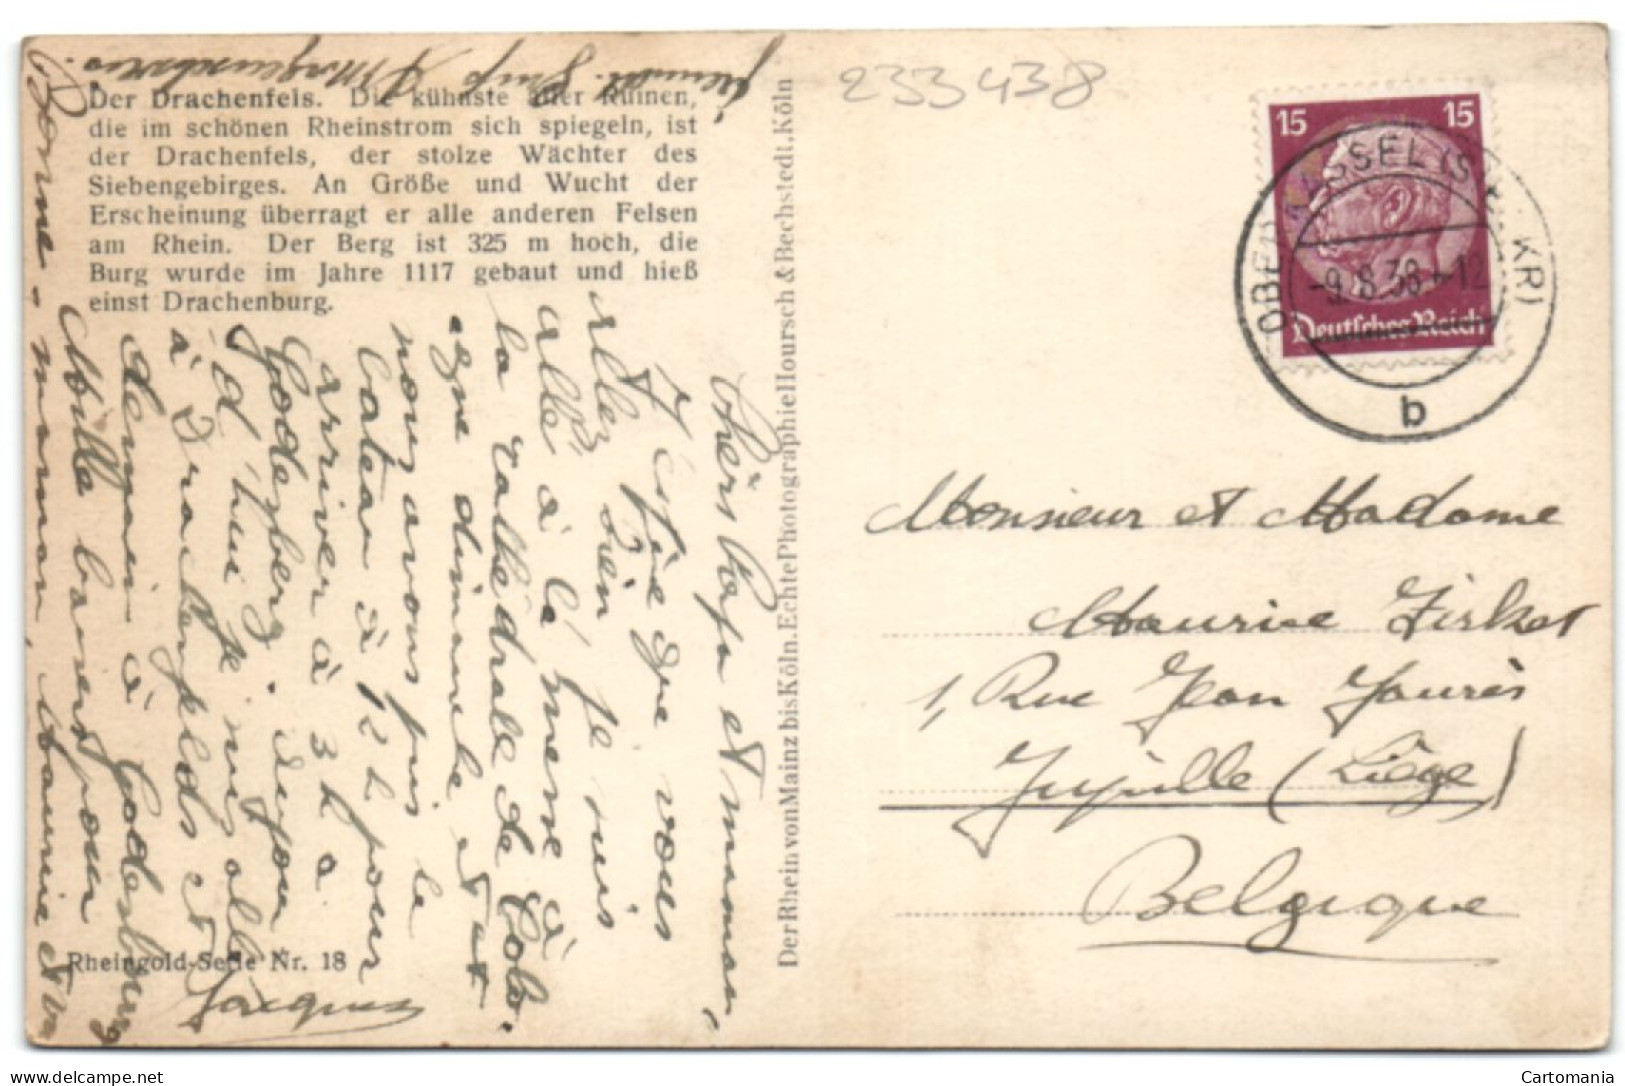 Der Drachenfels. Die kühnste aller Ruinen,
die im schönen Rheinstrom sich spiegeln, ist
der Drachenfels, der stolze Wächter des
Siebengebirges. An Größe und Wucht der
Erscheinung überragt er alle anderen Felsen
am Rhein. Der Berg ist 325 m hoch, die
Burg wurde im Jahre 1117 gebaut und hieß
einst Drachenburg.
Chers Papa et maman,
J'éspère que vous
allez bien je suis
allé à la messe à
la cathédrale de Colo-
gne dimanche et
nous avons pris le
bateau à 12 h pour
arriver à 3 h à
Godesberg. Aujour
d'hui je suis allé
à Drachenfelds et
demain à Godesburg
Mille baisers pour
Bonne-maman, Maurice et
Jacques
Rheingold-Serie Nr. 18
Der Rhein von Mainz bis Köln. Echte Photographie Hoursch & Bechstedt, Köln
233438
15 15
Deutsches Reich
OBERKASSEL (SIEGKR)
-9.8.38-12
b
Monsieur et Madame
Maurice Zirket
1, Rue Jean Jaurès
Jupille (Liège)
Belgique
Cartomania